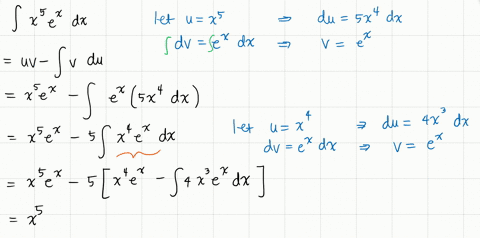 ∫ x⁵eˣ dx let u = x⁵ ⇒ du = 5x⁴ dx
∫dv = ∫eˣ dx ⇒ v = eˣ
= uv − ∫ v du
= x⁵eˣ − ∫ eˣ (5x⁴ dx)
= x⁵eˣ − 5∫ x⁴eˣ dx let u = x⁴ ⇒ du = 4x³ dx
dv = eˣ dx ⇒ v = eˣ
= x⁵eˣ − 5[x⁴eˣ − ∫4x³eˣ dx]
= x⁵